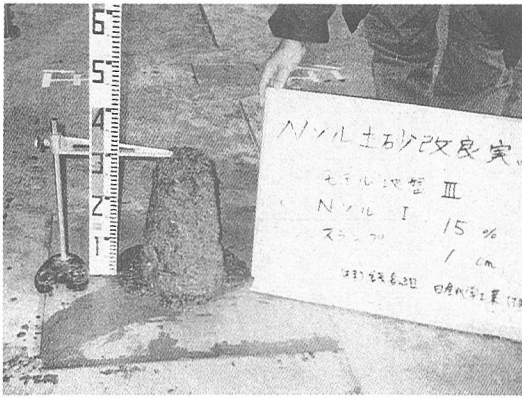 6
5
4
3
2
1
Nソル土砂改良実
モデル地盤 III
Nソル I 15 %
スランプ 1 cm
日産化学工業